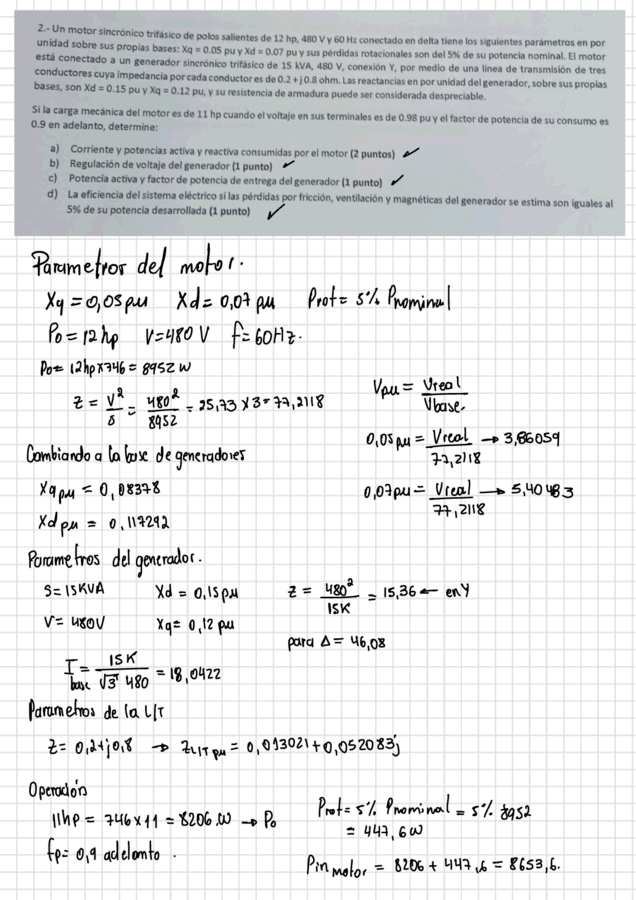 2.- Un motor sincrónico trifásico de polos salientes de 12 hp, 480 V y 60 Hz conectado en delta tiene los siguientes parámetros en por
unidad sobre sus propias bases: Xq = 0.05 pu y Xd = 0.07 pu y sus pérdidas rotacionales son del 5% de su potencia nominal. El motor
está conectado a un generador sincrónico trifásico de 15 kVA, 480 V, conexión Y, por medio de una línea de transmisión de tres
conductores cuya impedancia por cada conductor es de 0.2 + j 0.8 ohm. Las reactancias en por unidad del generador, sobre sus propias
bases, son Xd = 0.15 pu y Xq = 0.12 pu, y su resistencia de armadura puede ser considerada despreciable.
Si la carga mecánica del motor es de 11 hp cuando el voltaje en sus terminales es de 0.98 pu y el factor de potencia de su consumo es
0.9 en adelanto, determine:
a) Corriente y potencias activa y reactiva consumidas por el motor (2 puntos) ✓
b) Regulación de voltaje del generador (1 punto) ✓
c) Potencia activa y factor de potencia de entrega del generador (1 punto) ✓
d) La eficiencia del sistema eléctrico si las pérdidas por fricción, ventilación y magnéticas del generador se estima son iguales al
5% de su potencia desarrollada (1 punto) ✓
Parametros del motor.
Xq = 0,05 pu Xd = 0,07 pu Prot = 5% Pnominal
Po = 12 hp V = 480 V f = 60 Hz.
Po = 12hp x 746 = 8952 W
Z = V²/S = 480²/8952 = 25,73 x 3 = 77,2118
Vpu = Vreal/Vbase.
0,05 pu = Vreal/77,2118 → 3,86059
0,07 pu = Vreal/77,2118 → 5,40483
Cambiando a la base de generadores
Xq pu = 0,08378
Xd pu = 0,117292
Parametros del generador.
S = 15KVA Xd = 0,15 pu Z = 480²/15K = 15,36 ← en Y
V = 480V Xq = 0,12 pu
para Δ = 46,08
I base = 15K/√3 480 = 18,0422
Parametros de la L/T
Z = 0,2+j0,8 → Z L/T pu = 0,013021 + 0,052083j
Operación
11hp = 746 x 11 = 8206 W → Po
fp = 0,9 adelanto.
Prot = 5% Pnominal = 5% 8952
= 447,6 W
Pin motor = 8206 + 447,6 = 8653,6.